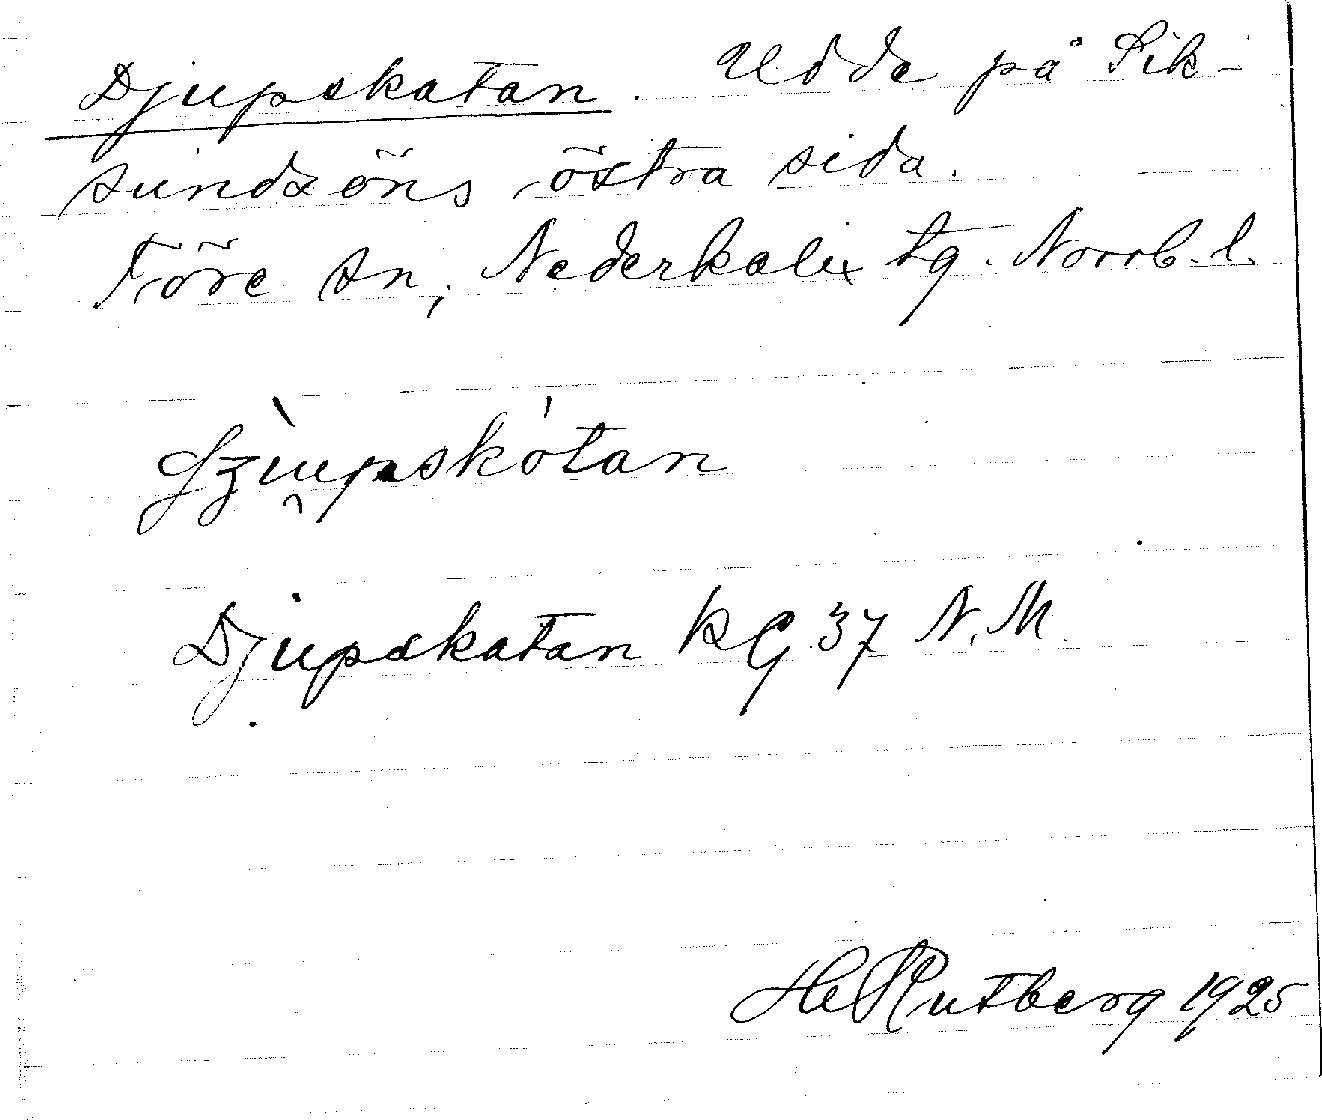 Djupskatan. Udde på Sik-
sundsöns östra sida.
Töre sn, Nederkalix tg. Norrb. l.
Djupskatan KG 37 N.M.
H Rutberg 1925